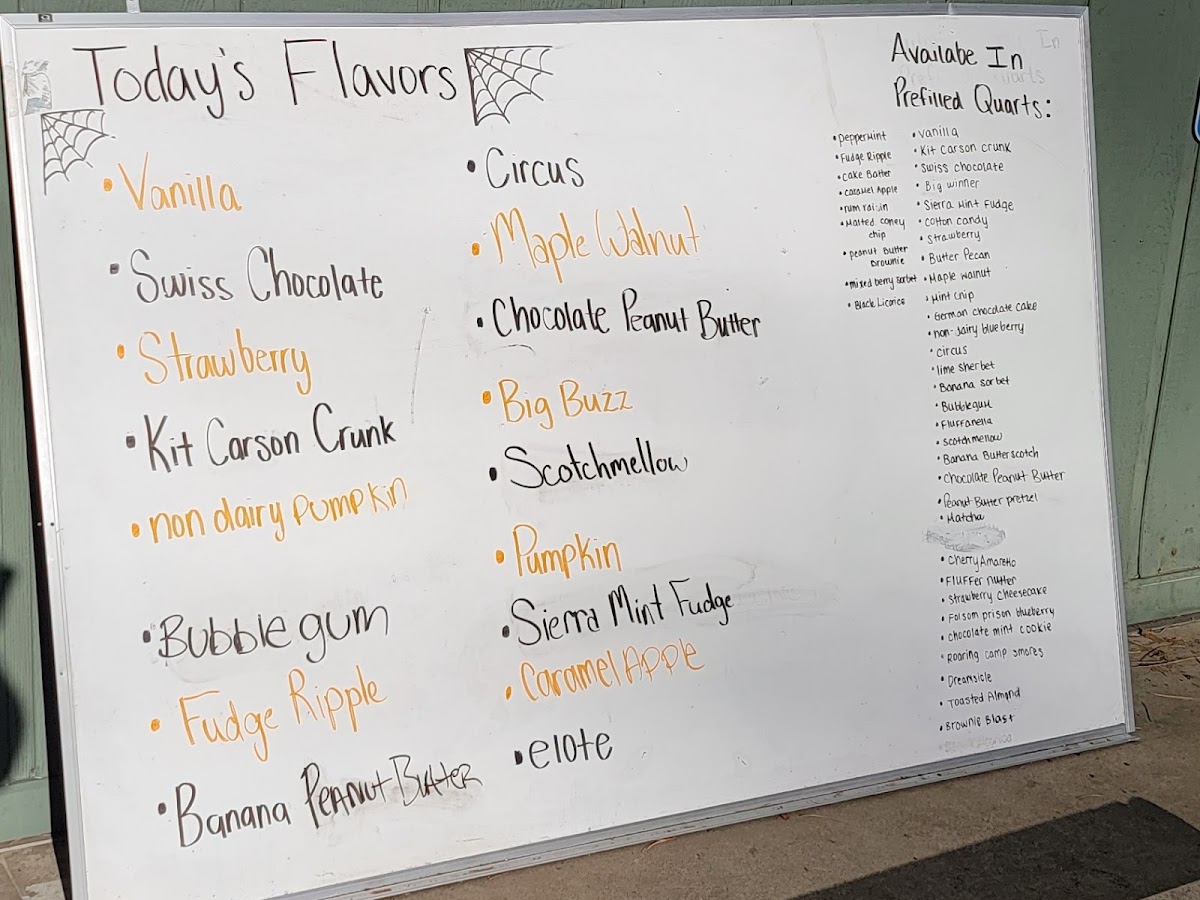 Today's Flavors
• Vanilla
• Swiss Chocolate
• Strawberry
• Kit Carson Crunk
• non dairy pumpkin
• Bubblegum
• Fudge Ripple
• Banana Peanut Butter
• Circus
• Maple Walnut
• Chocolate Peanut Butter
• Big Buzz
• Scotchmellow
• Pumpkin
• Sierra Mint Fudge
• Caramel Apple
• elote
Availabe In
Prefilled Quarts:
• peppermint
• Fudge Ripple
• Cake Batter
• caramel Apple
• rum raisin
• Malted coney
chip
• peanut Butter
Brownie
• mixed berry sorbet
• Black Licorice
• vanilla
• Kit Carson crunk
• Swiss chocolate
• Big winner
• Sierra Mint Fudge
• Cotton candy
• Strawberry
• Butter Pecan
• Maple walnut
• Mint chip
• German chocolate cake
• non-dairy blueberry
• circus
• lime sherbet
• Banana sorbet
• Bubblegum
• Fluffanella
• Scotchmellow
• Banana Butterscotch
• Chocolate Peanut Butter
• Peanut Butter pretzel
• Matcha
• Cherry Amaretto
• Fluffer nutter
• Strawberry Cheesecake
• Folsom prison blueberry
• chocolate mint cookie
• Roaring camp smores
• Dreamsicle
• Toasted Almond
• Brownie Blast